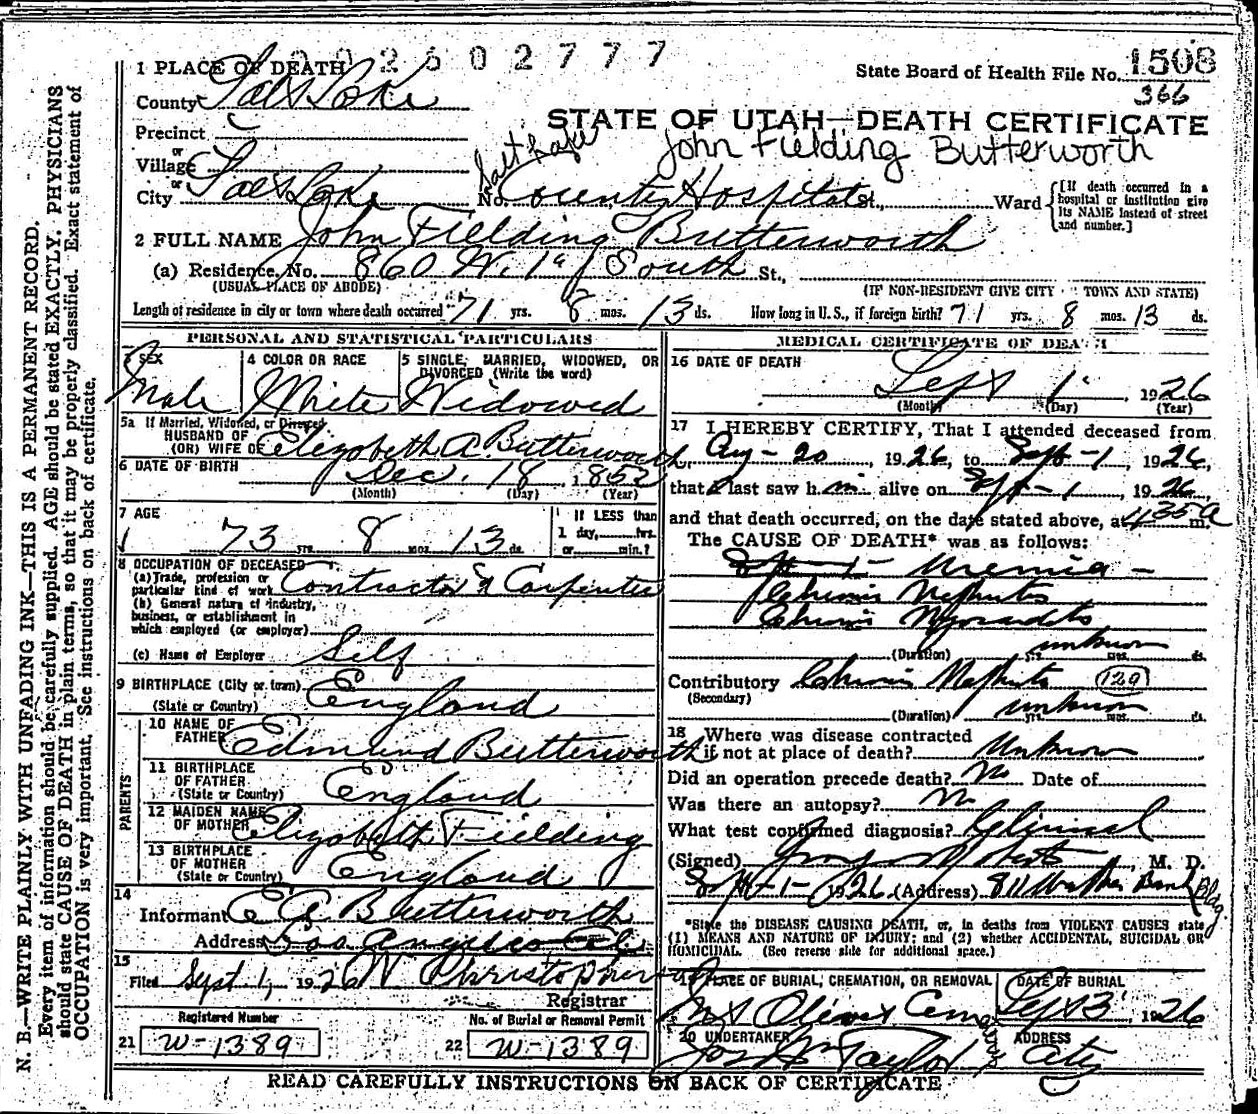 002502777
1 PLACE OF DEATH
State Board of Health File No. 1508
366
County Salt Lake
STATE OF UTAH—DEATH CERTIFICATE
Precinct
or
John Fielding Butterworth
Village
or
Salt Lake
City Salt Lake No. County Hospital St., Ward
[If death occurred in a
hospital or institution give
its NAME instead of street
and number.]
2 FULL NAME John Fielding Butterworth
(a) Residence, No. 860 W. 1st South St.,
(USUAL PLACE OF ABODE) (IF NON-RESIDENT GIVE CITY TOWN AND STATE)
Length of residence in city or town where death occurred 71 yrs. 8 mos. 13 ds. How long in U.S., if foreign birth? 71 yrs. 8 mos. 13 ds.
PERSONAL AND STATISTICAL PARTICULARS
3 SEX
Male
4 COLOR OR RACE
White
5 SINGLE, MARRIED, WIDOWED, OR
DIVORCED (Write the word)
Widowed
5a If Married, Widowed, or Divorced
HUSBAND OF
(OR) WIFE OF Elizabeth A. Butterworth
6 DATE OF BIRTH Dec. 18 1852
(Month) (Day) (Year)
7 AGE
73 yrs. 8 mos. 13 ds.
If LESS than
1 day, hrs.
or min.?
8 OCCUPATION OF DECEASED
(a) Trade, profession or
particular kind of work Contractor & Carpenter
(b) General nature of industry,
business, or establishment in
which employed (or employer)
(c) Name of Employer Self
9 BIRTHPLACE (City or town)
(State or Country) England
PARENTS
10 NAME OF
FATHER Edmund Butterworth
11 BIRTHPLACE
OF FATHER
(State or Country) England
12 MAIDEN NAME
OF MOTHER Elizabeth Fielding
13 BIRTHPLACE
OF MOTHER
(State or Country) England
14
Informant E A Butterworth
Address Los Angeles Cal.
15
Filed Sept. 1, 1926 W Christopherson
Registrar
Registered Number
No. of Burial or Removal Permit
21 W-1389
22 W-1389
MEDICAL CERTIFICATE OF DEATH
16 DATE OF DEATH
Sept 1 1926
(Month) (Day) (Year)
17 I HEREBY CERTIFY, That I attended deceased from
Aug-20, 1926, to Sept-1, 1926,
that I last saw him alive on Sept-1, 1926,
and that death occurred, on the date stated above, at 4:35 a m.
The CAUSE OF DEATH* was as follows:
Sept-1- Uremia -
Chronic Nephritis
Chronic Myocarditis
unknown
(Duration) yrs. mos. ds.
Contributory Chronic Nephritis 129
(Secondary)
unknown
(Duration) yrs. mos. ds.
18 Where was disease contracted
if not at place of death? Unknown
Did an operation precede death? No Date of
Was there an autopsy? No
What test confirmed diagnosis? Clinical
(Signed) , M. D.
Sept-1-1926 (Address) 811 Walker Bank Bldg
*State the DISEASE CAUSING DEATH, or, in deaths from VIOLENT CAUSES state
(1) MEANS AND NATURE OF INJURY; and (2) whether ACCIDENTAL, SUICIDAL OR
HOMICIDAL. (See reverse side for additional space.)
19 PLACE OF BURIAL, CREMATION, OR REMOVAL
Mt Olivet Cemetery
DATE OF BURIAL
Sept 3 1926
20 UNDERTAKER
Jos Wm Taylor
ADDRESS
City
READ CAREFULLY INSTRUCTIONS ON BACK OF CERTIFICATE
N. B.—WRITE PLAINLY WITH UNFADING INK—THIS IS A PERMANENT RECORD.
Every item of information should be carefully supplied. AGE should be stated EXACTLY. PHYSICIANS
should state CAUSE OF DEATH in plain terms, so that it may be properly classified. Exact statement of
OCCUPATION is very important. See instructions on back of certificate.